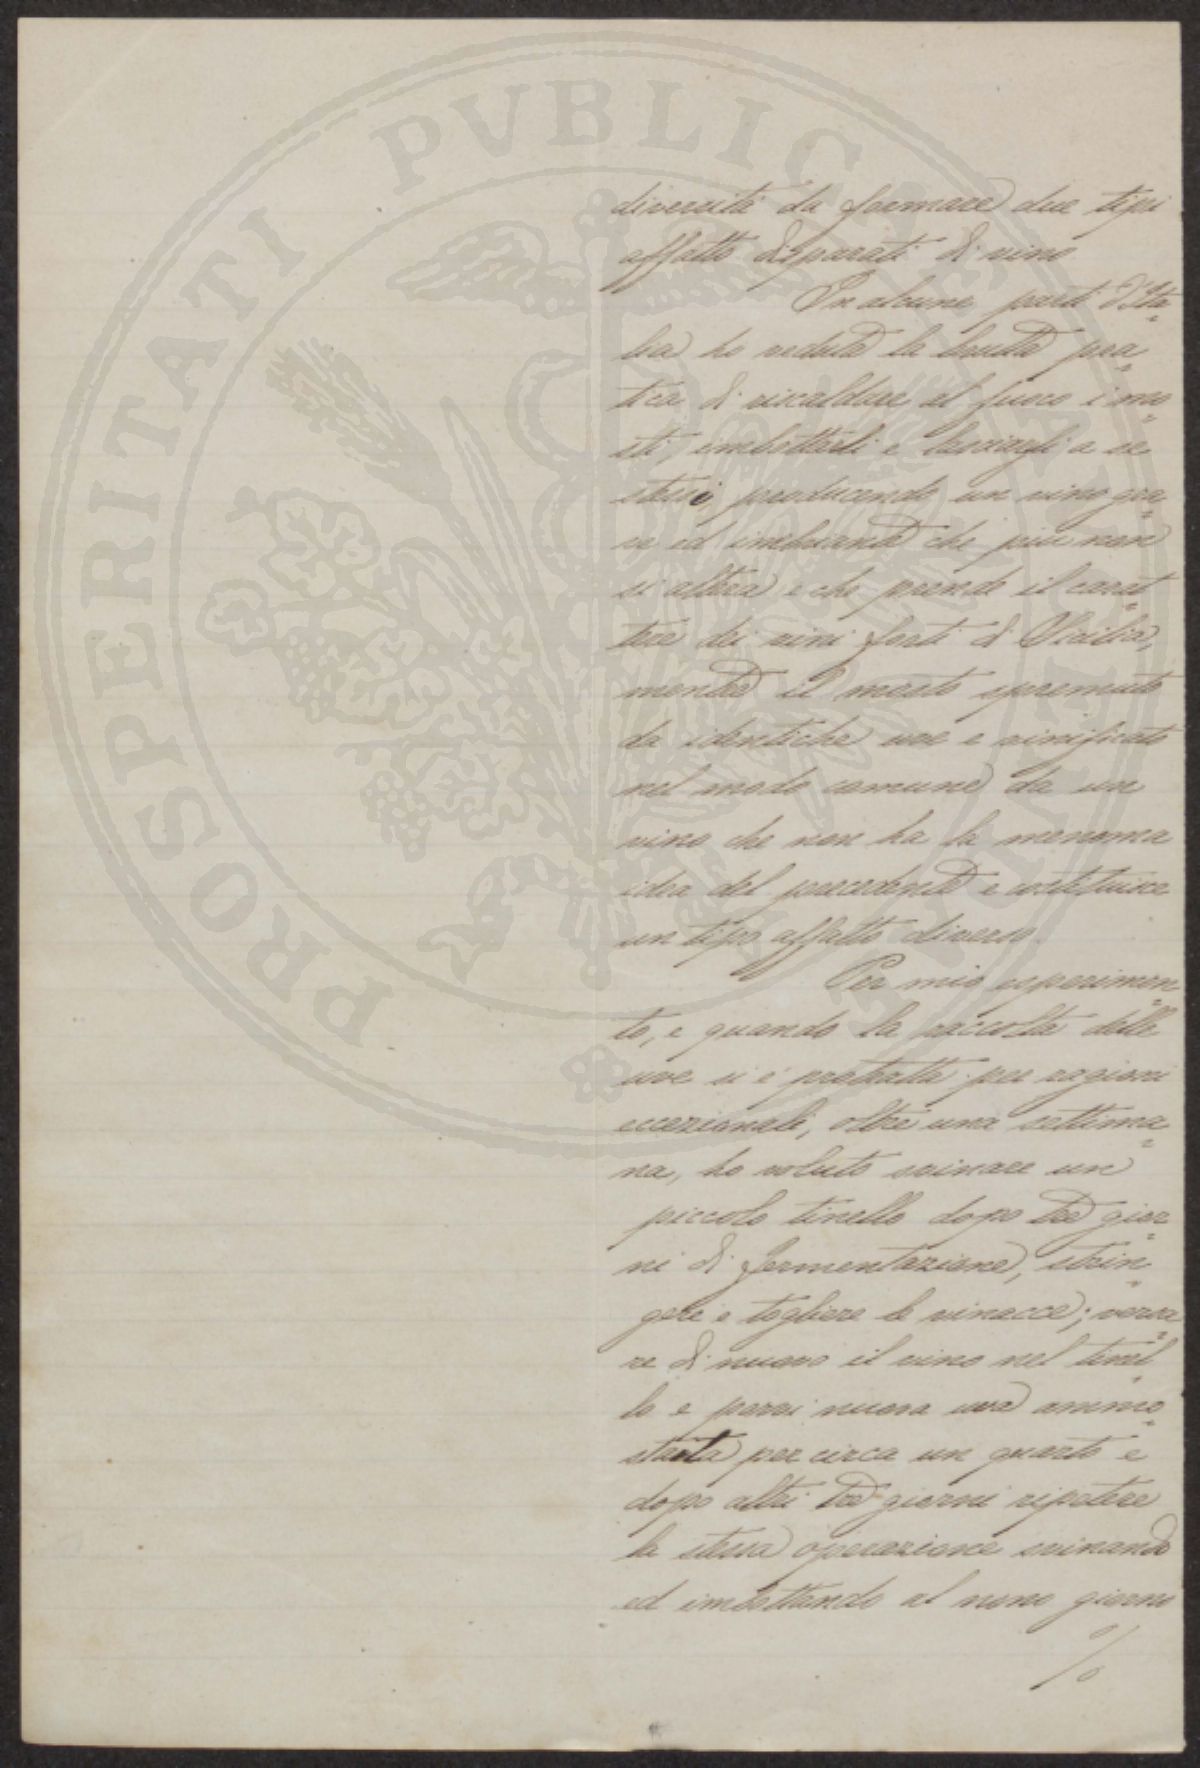 PROSPERITATI PVBLICAE
diversità da formare due tipi
affatto disparati di vino
In alcune parti d'Ita=
lia ho veduta la brutta pra=
tica di riscaldare al fuoco i mo=
sti, imbottarli e lasciargli a se
stessi, producendo un vino gra=
ve ed inebriante che più non
si altera e che prende il carat=
tere dei vini forti di Sicilia,
mentre il mosto spremuto
da identiche uve e vinificato
nel modo comune da un
vino che non ha la menoma
idea del precedente e costituisce
un tipo affatto diverso.
Per mio esperimen=
to, e quando la raccolta delle
uve si è protratta per ragioni
eccezionali, oltre una settima=
na, ho voluto svinare un
piccolo tinello dopo tre gior=
ni di fermentazione, strin=
gere e togliere le vinacce; versa=
re di nuovo il vino nel tinel=
lo e porvi nuova uva ammo=
stata per circa un quarto e
dopo altri tre giorni ripetere
la stessa operazione svinando
ed imbottando al nono giorno
%